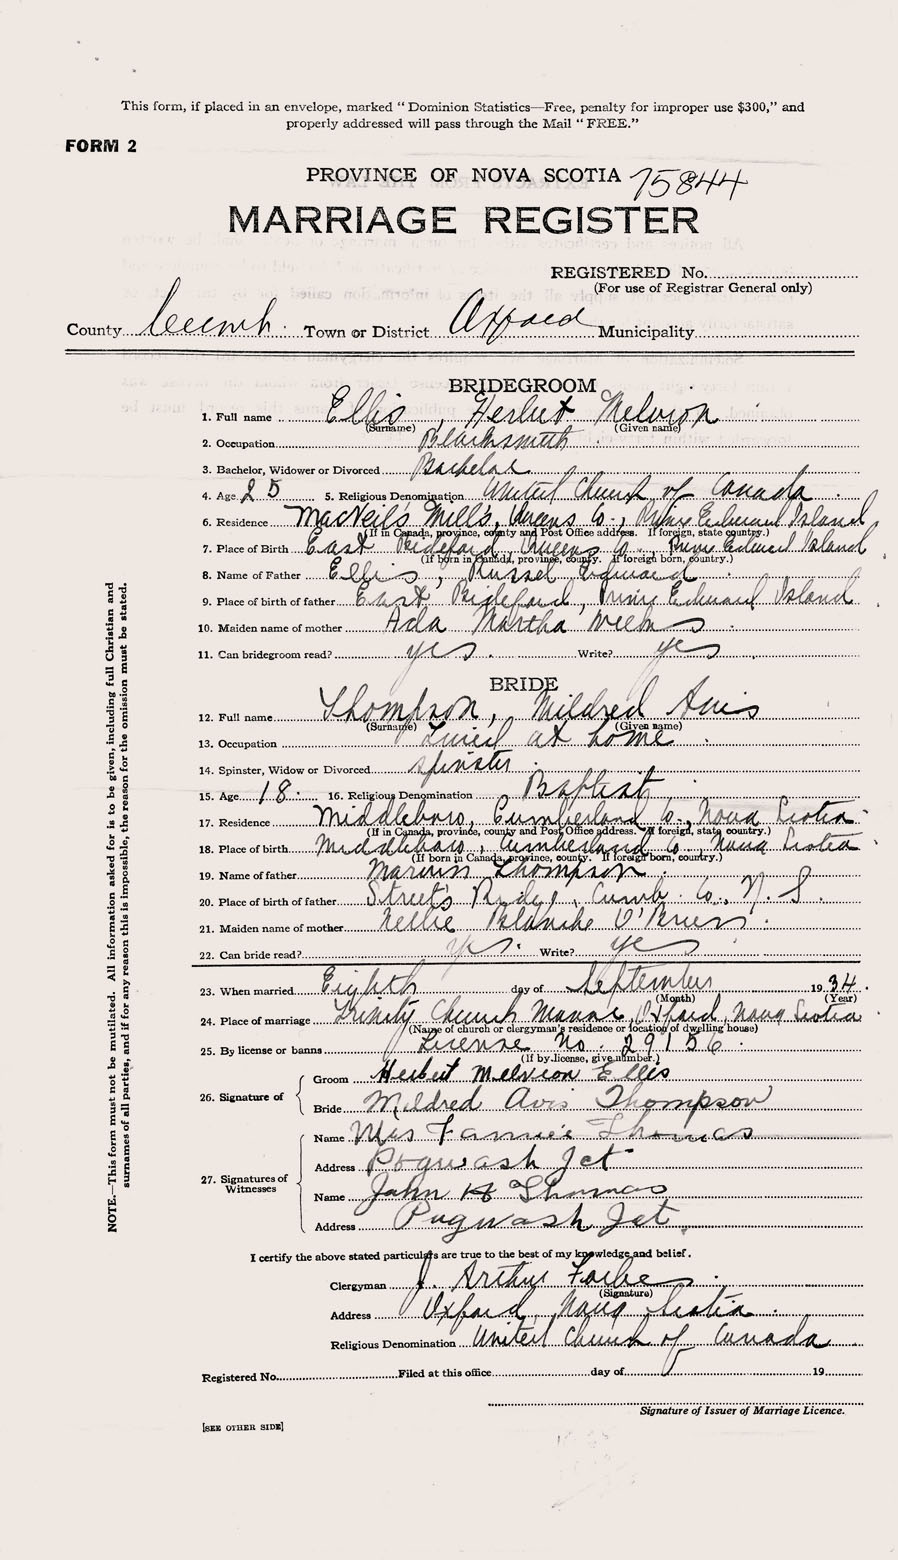 This form, if placed in an envelope, marked “ Dominion Statistics—Free, penalty for improper use $300,” and
properly addressed will pass through the Mail “ FREE.”
FORM 2
PROVINCE OF NOVA SCOTIA 75844
MARRIAGE REGISTER
REGISTERED No.
(For use of Registrar General only)
County Cumb. Town or District Oxford Municipality
BRIDEGROOM
1. Full name Ellis, Herbert Melvion
(Surname) (Given name)
2. Occupation Blacksmith
3. Bachelor, Widower or Divorced Bachelor
4. Age 25 5. Religious Denomination United Church of Canada
6. Residence MacNeil's Mills, Queens Co., Prince Edward Island
(If in Canada, province, county and Post Office address. If foreign, state country.)
7. Place of Birth East Bideford, Queens Co., Prince Edward Island
(If born in Canada, province, county. If foreign born, country.)
8. Name of Father Ellis, Russel Edward
9. Place of birth of father East Bideford, Prince Edward Island
10. Maiden name of mother Ada Martha
11. Can bridegroom read? yes. Write? yes
BRIDE
12. Full name Thompson, Mildred Avis
(Surname) (Given name)
13. Occupation Lived at home
14. Spinster, Widow or Divorced spinster
15. Age 18. 16. Religious Denomination Baptist
17. Residence Middleboro, Cumberland Co., Nova Scotia
(If in Canada, province, county and Post Office address. If foreign, state country.)
18. Place of birth Middleboro, Cumberland Co., Nova Scotia
(If born in Canada, province, county. If foreign born, country.)
19. Name of father Thompson
20. Place of birth of father Street's Ridge, Cumb. Co., N. S.
21. Maiden name of mother Nellie Blanche O'Brien
22. Can bride read? yes. Write? yes
23. When married Eighth day of September 19 34.
(Month) (Year)
24. Place of marriage Trinity Church Manse, Oxford, Nova Scotia
(Name of church or clergyman's residence or location of dwelling house)
25. By license or banns License No. 29156
(If by license, give number.)
26. Signature of
Groom Herbert Melvion Ellis
Bride Mildred Avis Thompson
27. Signatures of Witnesses
Name Mrs Fannie Thomas
Address Pugwash Jct
Name John H Thomas
Address Pugwash Jct.
I certify the above stated particulars are true to the best of my knowledge and belief.
Clergyman J. Arthur Forbes
(Signature)
Address Oxford, Nova Scotia.
Religious Denomination United Church of Canada
Registered No. Filed at this office day of 19
Signature of Issuer of Marriage Licence.
[SEE OTHER SIDE]
NOTE.—This form must not be mutilated. All information asked for is to be given, including full Christian and
surnames of all parties, and if for any reason this is impossible, the reason for the omission must be stated.